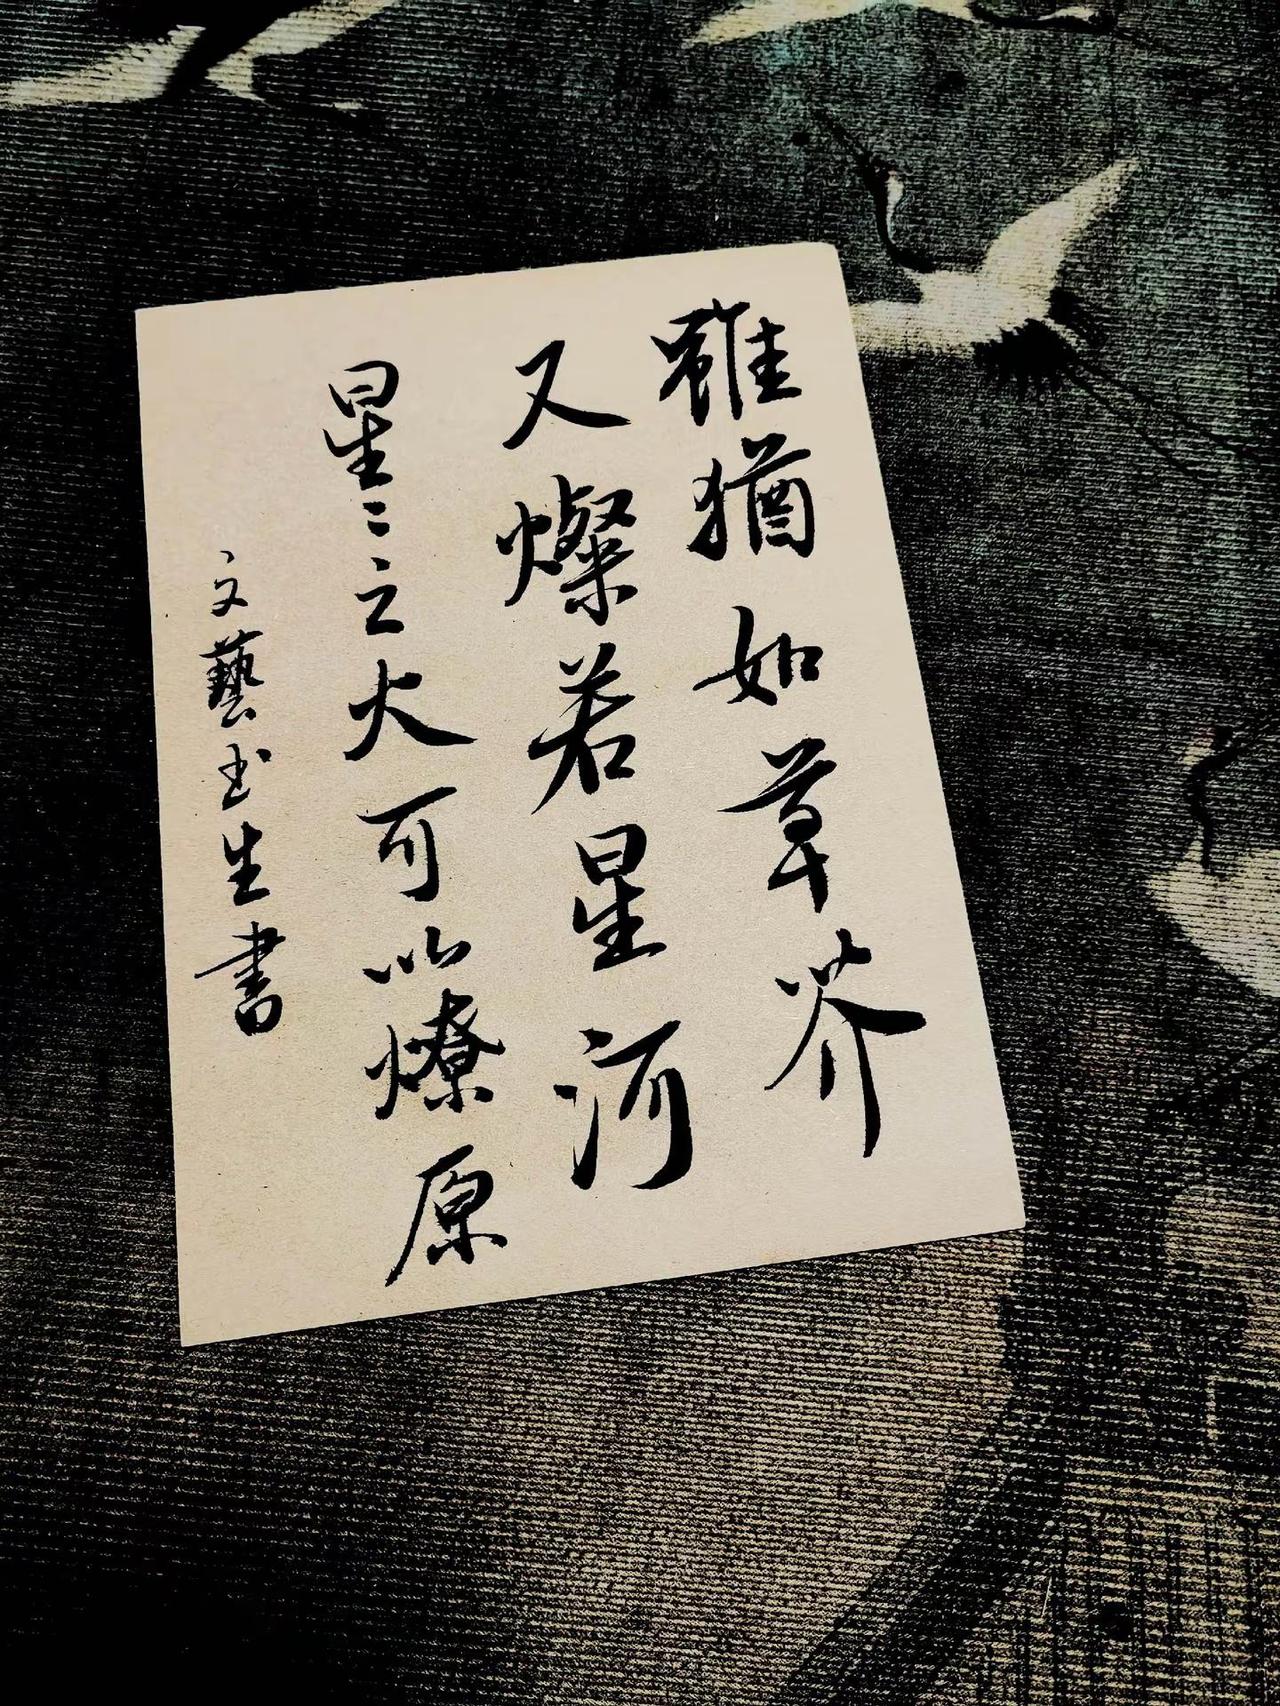 雖猶如草芥
又燦若星河
星〻之火可以燎原
文藝书生書